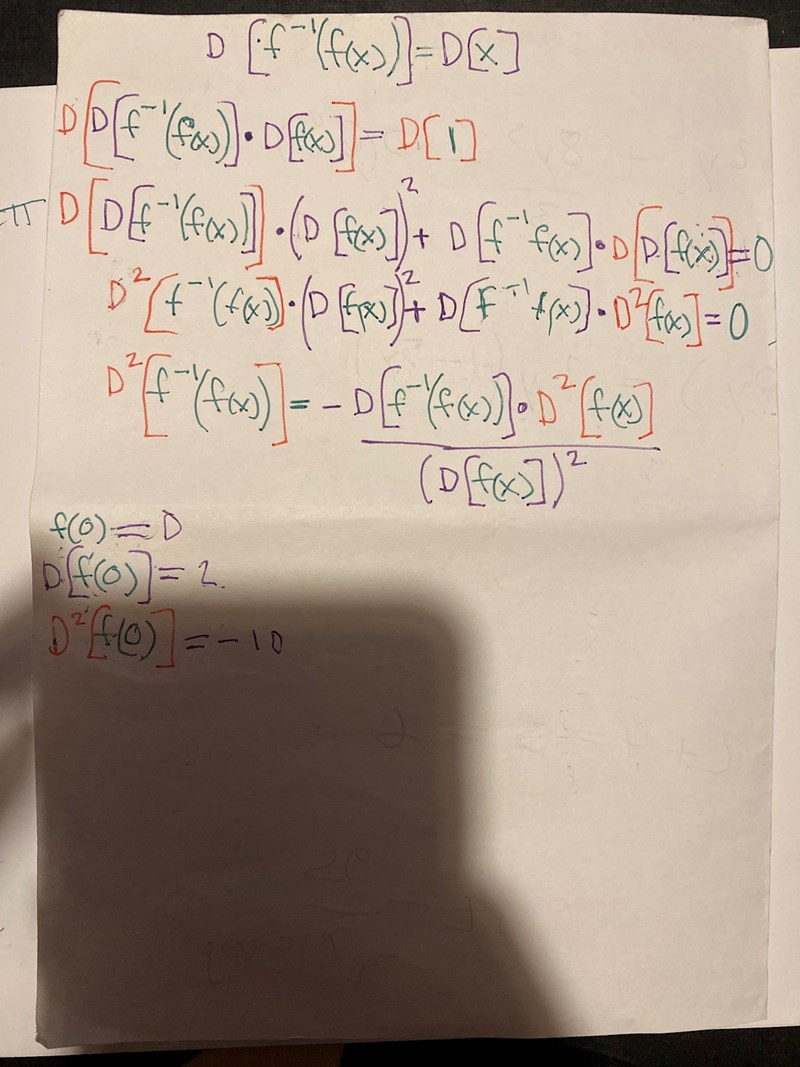 D [f⁻¹(f(x))] = D[x]
D[D[f⁻¹(f(x))] • D[f(x)]] = D[1]
π D[D[f⁻¹(f(x))]] • (D[f(x)])² + D[f⁻¹f(x)] • D[D[f(x)]] = 0
D²[f⁻¹(f(x))] • (D[f(x)])² + D[f⁻¹f(x)] • D²[f(x)] = 0
D²[f⁻¹(f(x))] = - D[f⁻¹(f(x))] • D²[f(x)]
(D[f(x)])²
f(0) = D
D[f(0)] = 2.
D²[f(0)] = -10